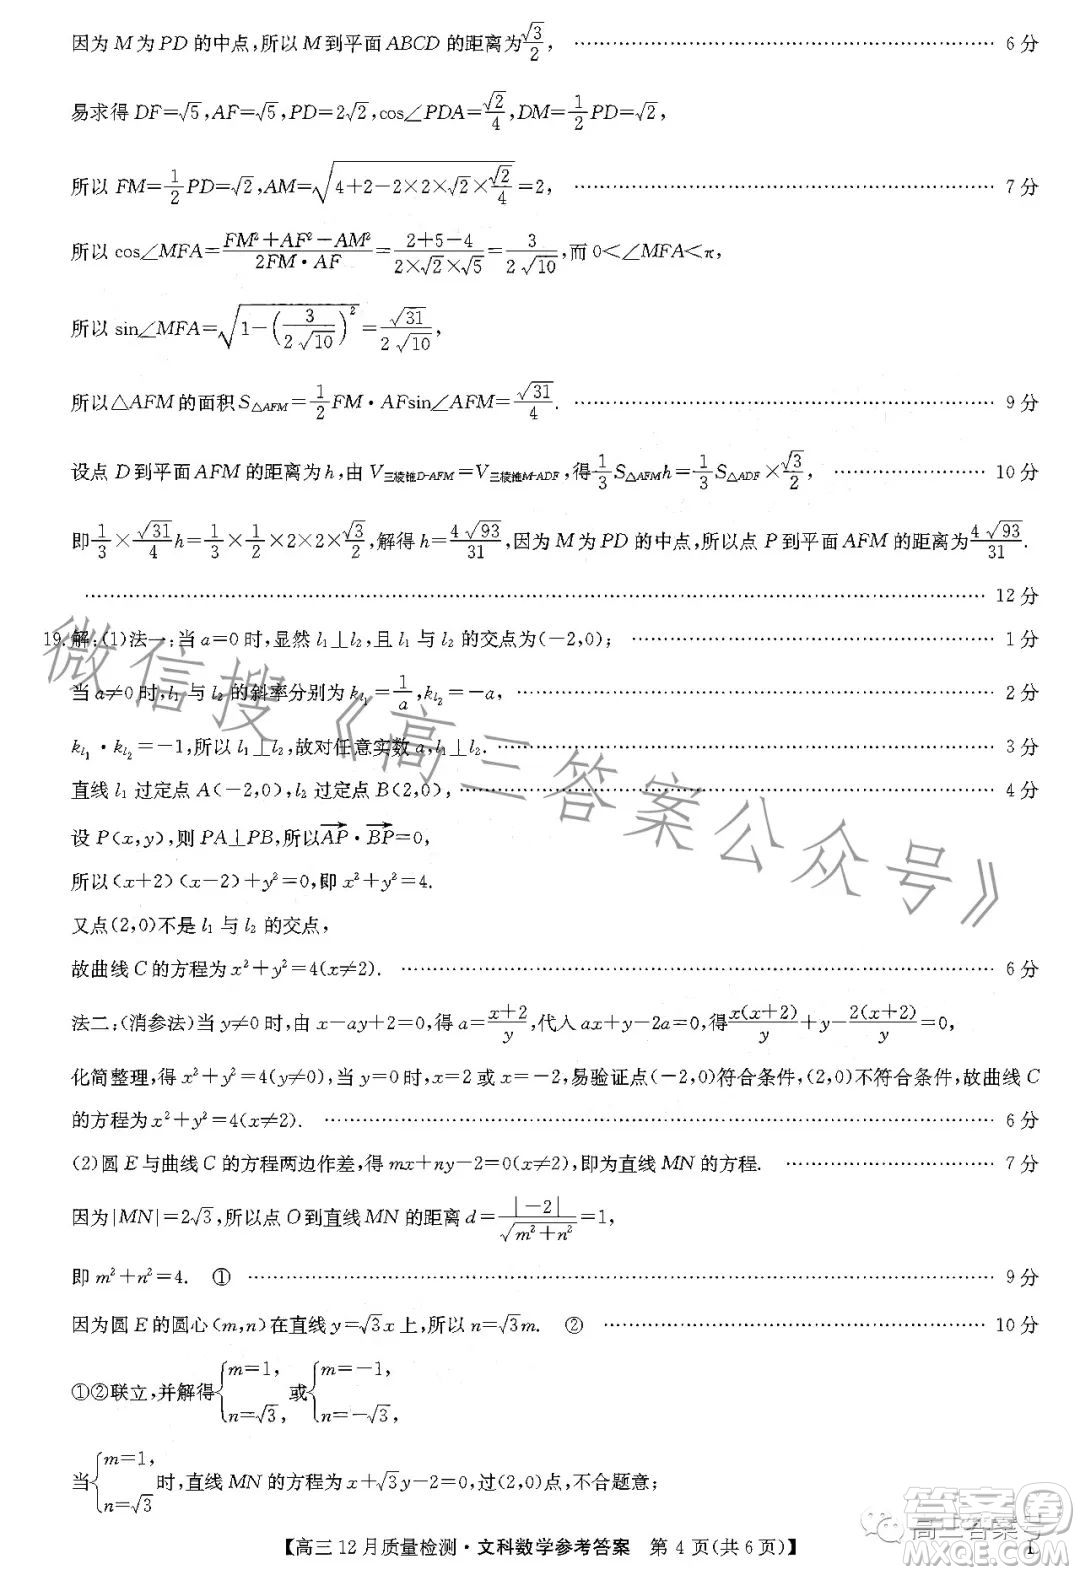 因为M为PD的中点,所以M到平面ABCD的距离为√3/2, …… 6分
易求得DF=√5,AF=√5,PD=2√2,cos∠PDA=√2/4,DM=1/2PD=√2,
所以FM=1/2PD=√2,AM=√(4+2-2×2×√2×√2/4)=2, …… 7分
所以cos∠MFA=(FM²+AF²-AM²)/(2FM·AF)=(2+5-4)/(2×√2×√5)=3/(2√10),而0<∠MFA<π,
所以sin∠MFA=√(1-(3/(2√10))²)=√31/(2√10),
所以△AFM的面积S△AFM=1/2FM·AFsin∠AFM=√31/4. …… 9分
设点D到平面AFM的距离为h,由V三棱锥D-AFM=V三棱锥M-ADF,得1/3S△AFMh=1/3S△ADF×√3/2, …… 10分
即1/3×√31/4h=1/3×1/2×2×2×√3/2,解得h=4√93/31,因为M为PD的中点,所以点P到平面AFM的距离为4√93/31.
…… 12分
19.解:(1)法一:当a=0时,显然l₁⊥l₂,且l₁与l₂的交点为(-2,0); …… 1分
当a≠0时,l₁与l₂的斜率分别为kl₁=1/a,kl₂=-a, …… 2分
kl₁·kl₂=-1,所以l₁⊥l₂,故对任意实数a,l₁⊥l₂. …… 3分
直线l₁过定点A(-2,0),l₂过定点B(2,0), …… 4分
设P(x,y),则PA⊥PB,所以AP→·BP→=0,
所以(x+2)(x-2)+y²=0,即x²+y²=4.
又点(2,0)不是l₁与l₂的交点,
故曲线C的方程为x²+y²=4(x≠2). …… 6分
法二:(消参法)当y≠0时,由x-ay+2=0,得a=(x+2)/y,代入ax+y-2a=0,得x(x+2)/y+y-2(x+2)/y=0,
化简整理,得x²+y²=4(y≠0),当y=0时,x=2或x=-2,易验证点(-2,0)符合条件,(2,0)不符合条件,故曲线C
的方程为x²+y²=4(x≠2). …… 6分
(2)圆E与曲线C的方程两边作差,得mx+ny-2=0(x≠2),即为直线MN的方程. …… 7分
因为|MN|=2√3,所以点O到直线MN的距离d=|-2|/√(m²+n²)=1,
即m²+n²=4. ① …… 9分
因为圆E的圆心(m,n)在直线y=√3x上,所以n=√3m. ② …… 10分
①②联立,并解得{m=1,n=√3,或{m=-1,n=-√3,
当{m=1,n=√3时,直线MN的方程为x+√3y-2=0,过(2,0)点,不合题意;
【高三12月质量检测·文科数学参考答案 第4页(共6页)】
微信搜《高三答案公众号》
高三答案号
答案圈